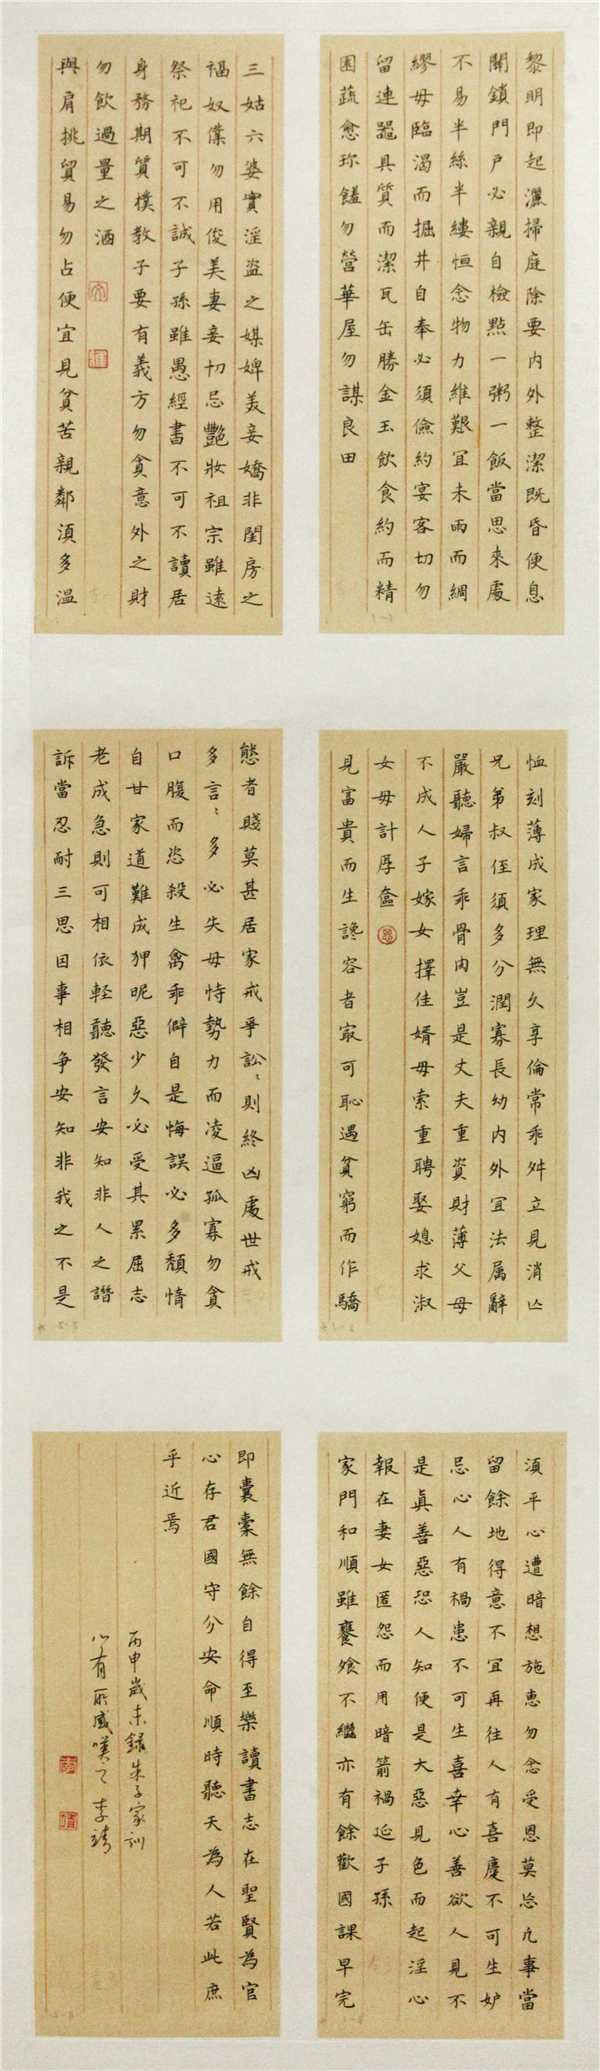 黎明即起灑掃庭除要内外整潔既昏便息
關鎖門戶必親自檢點一粥一飯當思來處
不易半絲半縷恒念物力維艱宜未雨而綢
繆毋臨渴而掘井自奉必須儉約宴客切勿
留連器具質而潔瓦缶勝金玉飲食約而精
園蔬愈珍饈勿營華屋勿謀良田
三姑六婆實淫盜之媒婢美妾嬌非閨房之
福奴僕勿用俊美妻妾切忌艷妝祖宗雖遠
祭祀不可不誠子孫雖愚經書不可不讀居
身務期質樸教子要有義方勿貪意外之財
勿飲過量之酒
與肩挑貿易勿占便宜見貧苦親鄰須多溫
恤刻薄成家理無久享倫常乖舛立見消亡
兄弟叔侄須多分潤寡長幼内外宜法属辭
嚴聽婦言乖骨肉豈是丈夫重資財薄父母
不成人子嫁女擇佳婿毋索重聘娶媳求淑
女毋計厚奩
見富貴而生讒容者最可恥遇貧窮而作驕
態者賤莫甚居家戒爭訟訟則終凶處世戒
多言言多必失毋恃勢力而凌逼孤寡勿貪
口腹而恣殺生禽乖僻自是悔誤必多頹惰
自甘家道難成狎昵惡少久必受其累屈志
老成急則可相依輕聽發言安知非人之譖
訴當忍耐三思因事相争安知非我之不是
須平心遭暗想施惠勿念受恩莫忘凡事當
留餘地得意不宜再往人有喜慶不可生妒
忌心人有禍患不可生喜幸心善欲人見不
是真善惡恐人知便是大惡見色而起淫心
報在妻女匿怨而用暗箭禍延子孫
家門和順雖饔飧不繼亦有餘歡國課早完
即囊橐無餘自得至樂讀書志在聖賢為官
心存君國守分安命順時聽天為人若此庶
乎近焉
丙申歲末録朱子家訓
心有所感嘆之李靖